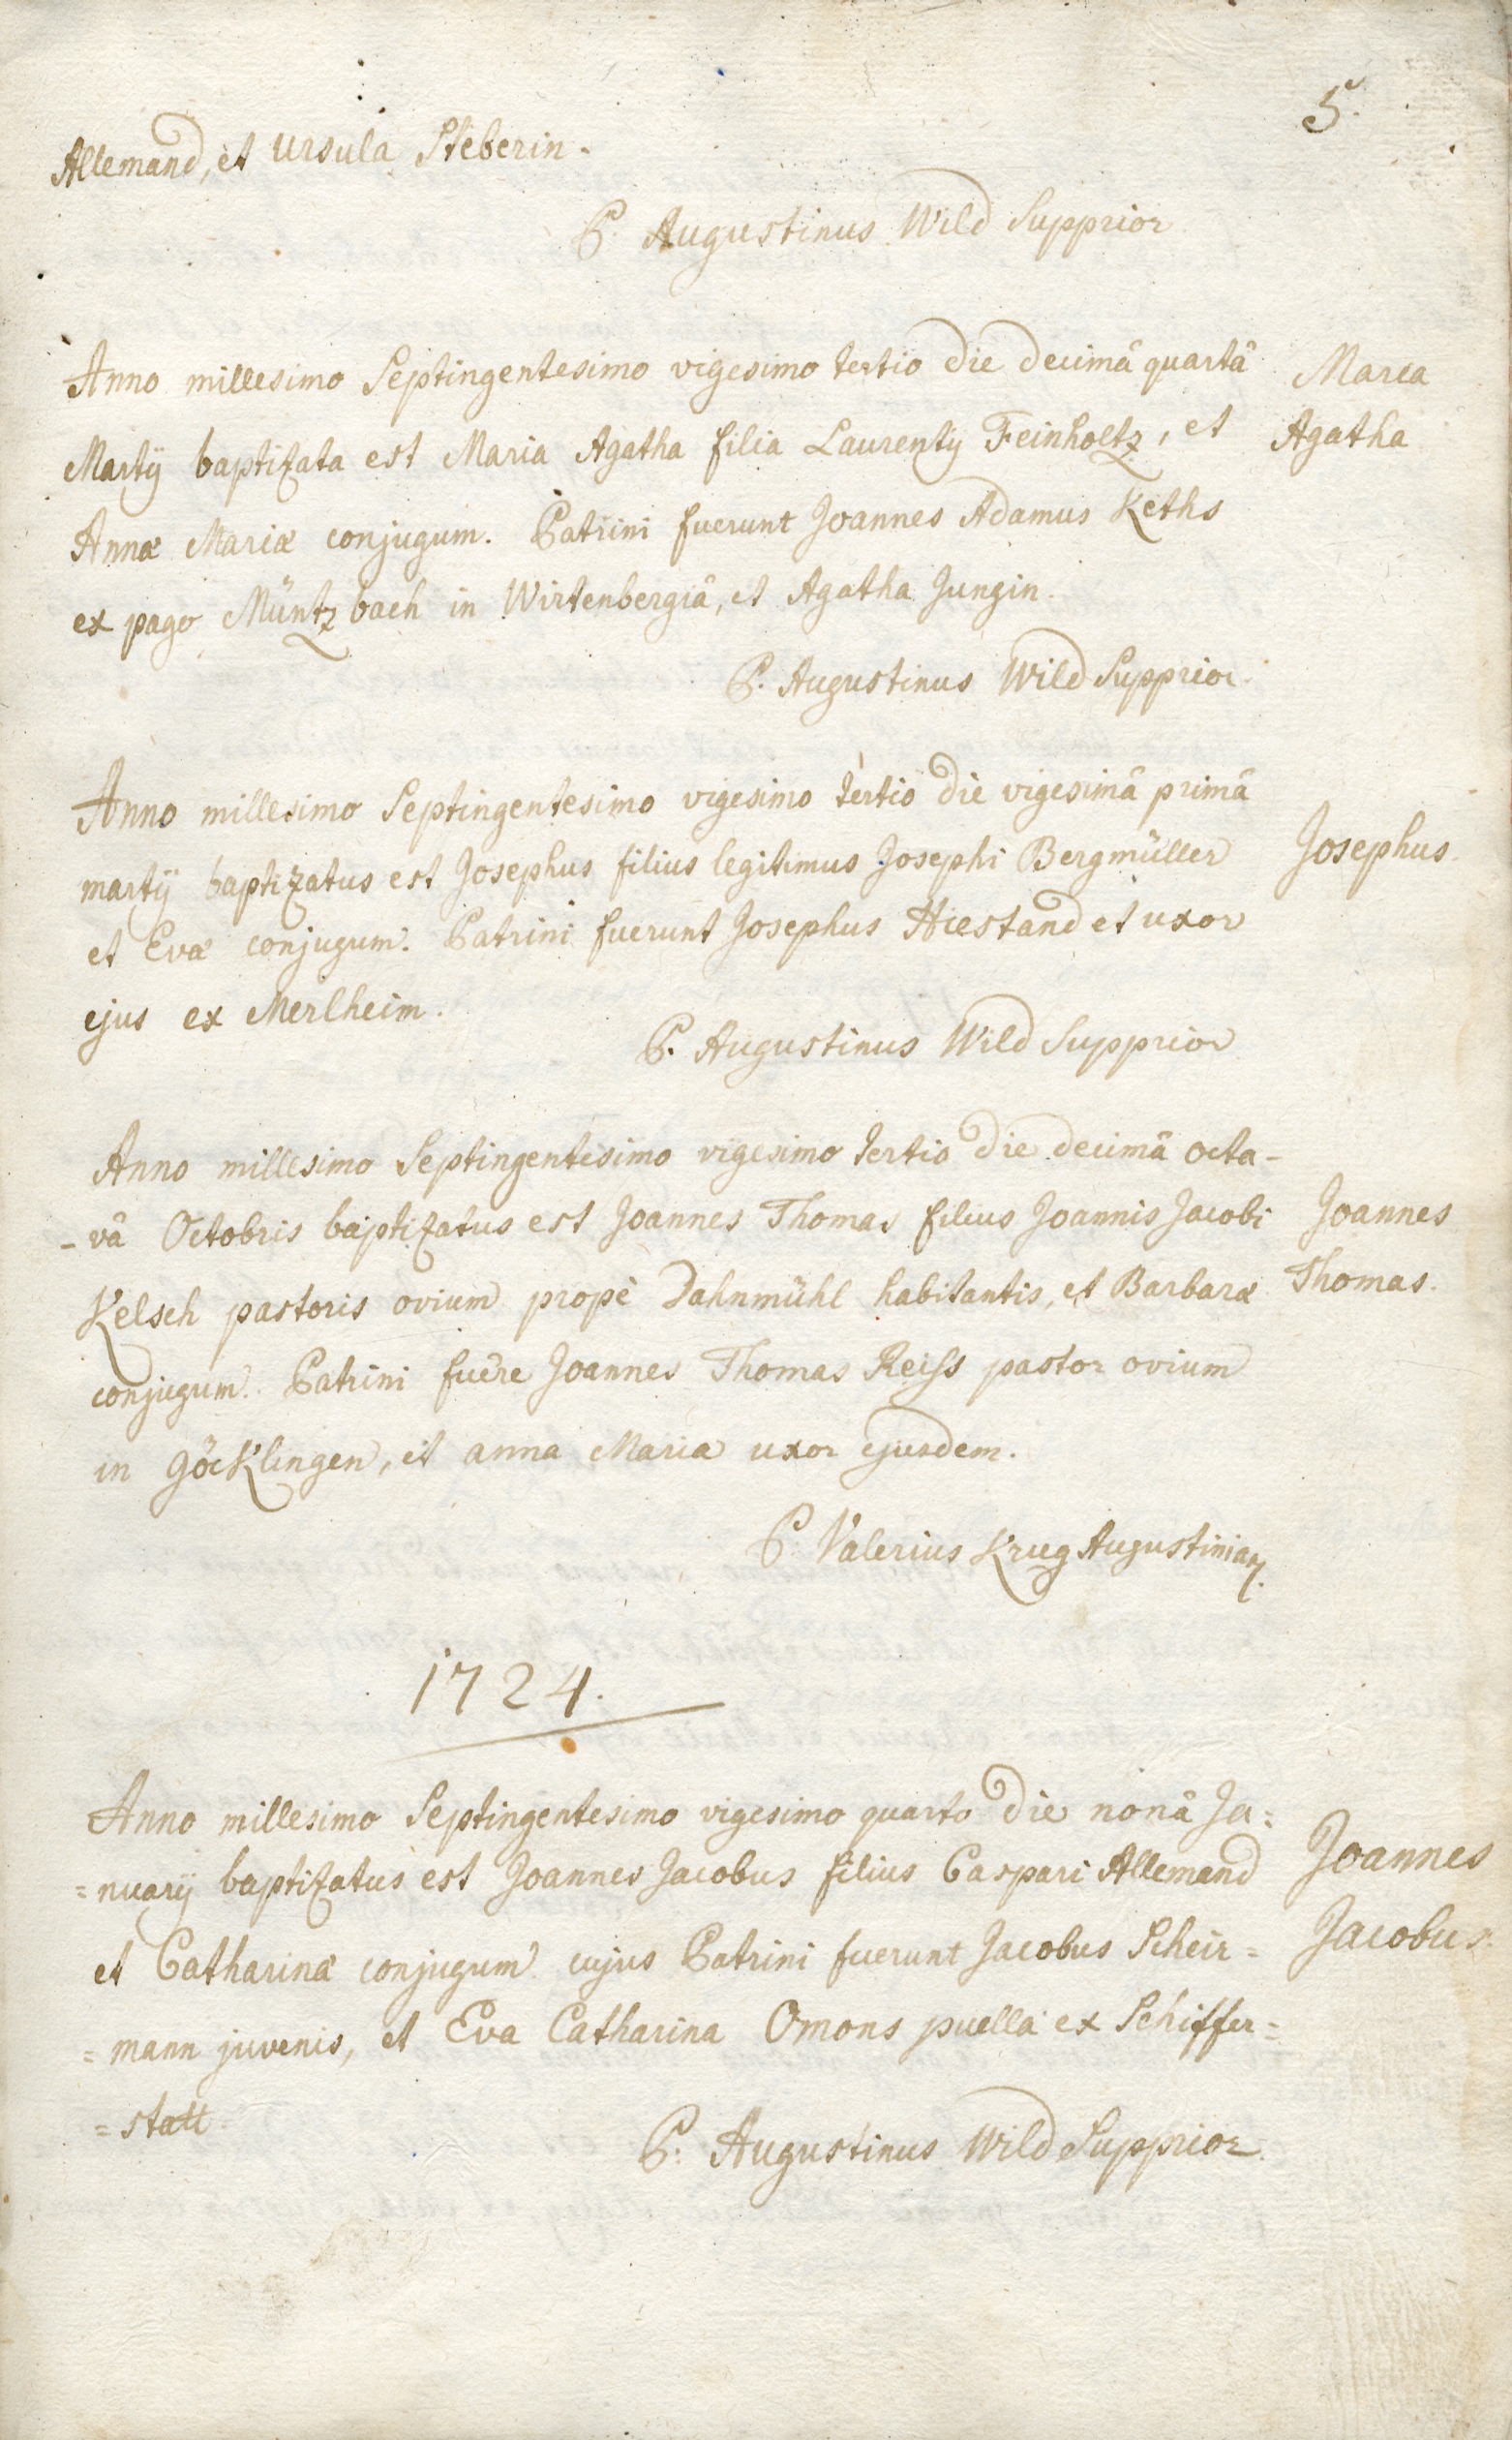 5.
Allemand, et Ursula Steberin.
P. Augustinus Wild Supprior
Anno millesimo Septingentesimo vigesimo tertio die decimâ quartâ
Martÿ baptizata est Maria Agatha filia Laurentÿ Feinholtz, et
Annæ Mariæ conjugum. Patrini fuerunt Joannes Adamus Keths
ex pago Müntzbach in Wirtenbergiâ, et Agatha Jungin.
Maria
Agatha
P. Augustinus Wild Supprior.
Anno millesimo Septingentesimo vigesimo tertio die vigesimâ primâ
martÿ baptizatus est Josephus filius legitimus Josephi Bergmüller
et Evæ conjugum. Patrini fuerunt Josephus Hiestand et uxor
ejus ex Merlheim.
Josephus.
P. Augustinus Wild Supprior
Anno millesimo Septingentesimo vigesimo tertio die decimâ octa-
-vâ Octobris baptizatus est Joannes Thomas filius Joannis Jacobi
Kelsch pastoris ovium propè Dahnmühl habitantis, et Barbaræ
conjugum. Patrini fuêre Joannes Thomas Reiss pastor ovium
in Göcklingen, et anna Maria uxor ejusdem.
Joannes
Thomas.
P. Valerius Krug Augustinian.
1724.
Anno millesimo Septingentesimo vigesimo quarto die nonâ Ja=
=nuarÿ baptizatus est Joannes Jacobus filius Caspari Allemand
et Catharinæ conjugum cujus Patrini fuerunt Jacobus Scheir=
=mann juvenis, et Eva Catharina Omons puella ex Schiffer=
=statt.
Joannes
Jacobus.
P. Augustinus Wild Supprior.